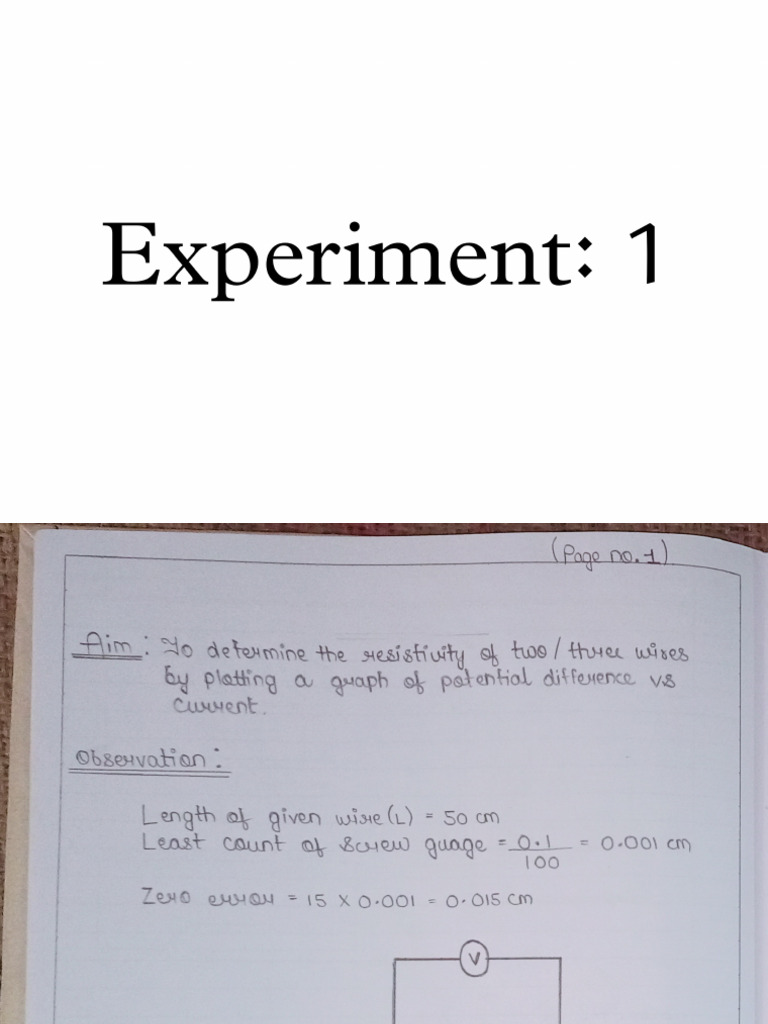 Experiment: 1
(Page no. 1)
Aim: To determine the resistivity of two/three wires
by plotting a graph of potential difference vs
current.
Observation:
Length of given wire (L) = 50 cm
Least count of screw guage = 0.1/100 = 0.001 cm
Zero error = 15 X 0.001 = 0.015 cm
V